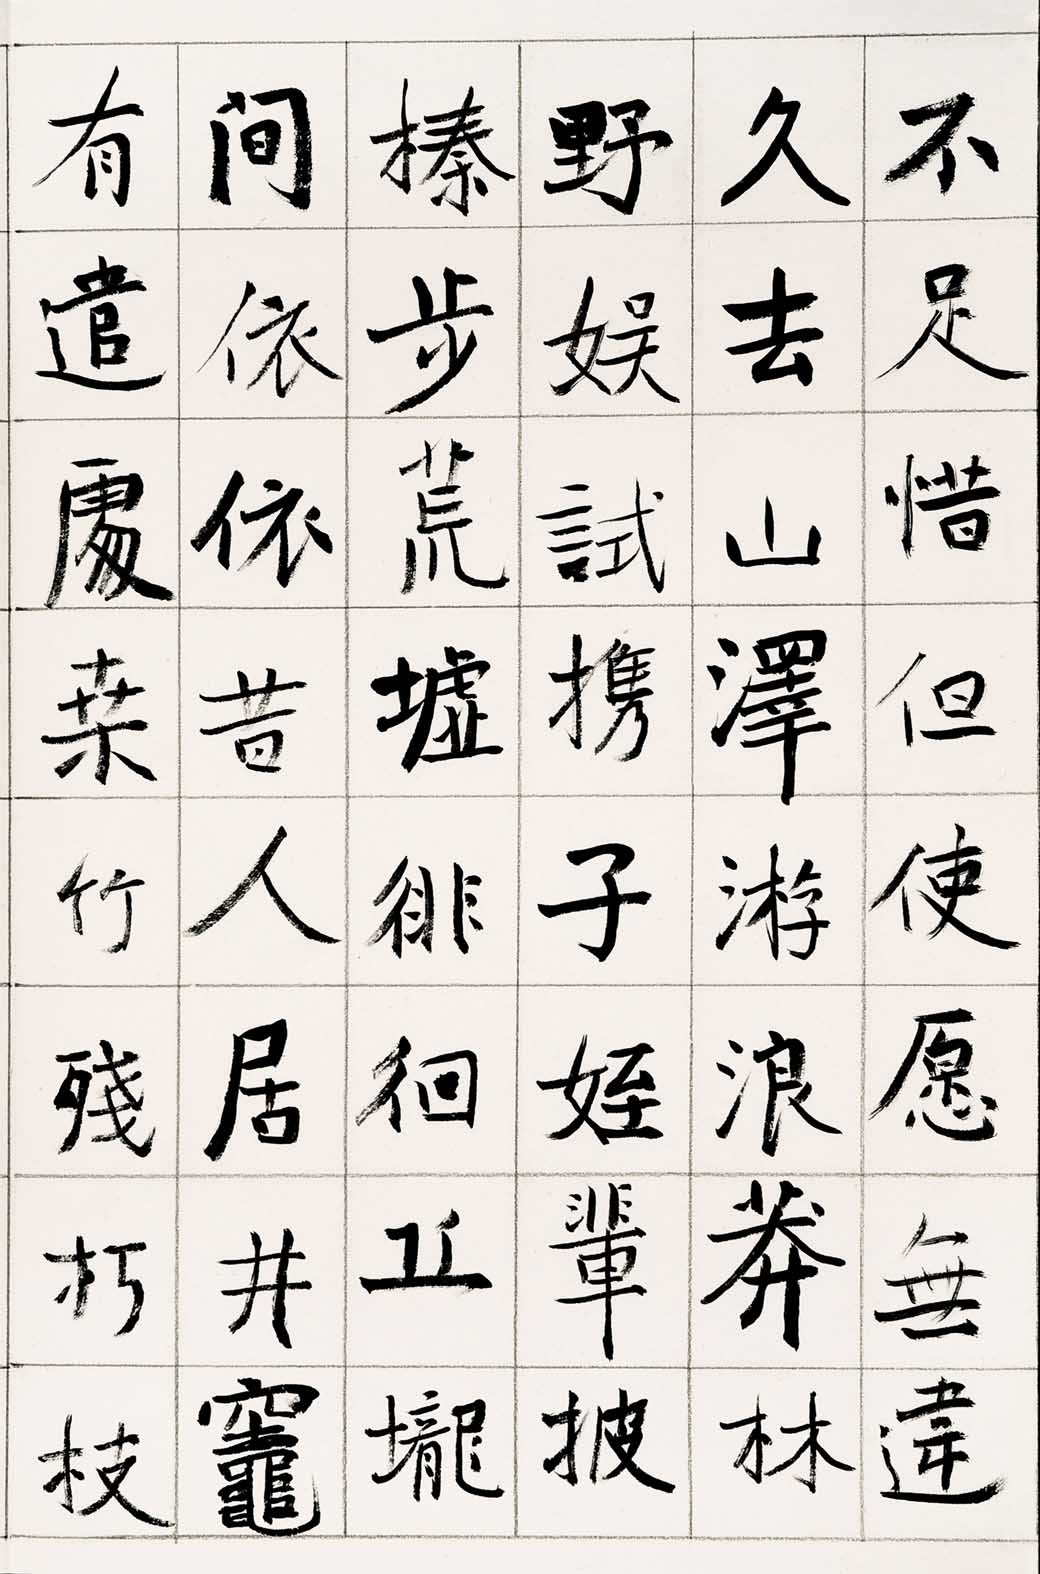 不足惜但使愿無違
久去山澤游浪莽林
野娱試携子姪輩披
榛步荒墟徘徊丘壠
间依依昔人居井竈
有遺處桒竹殘朽枝